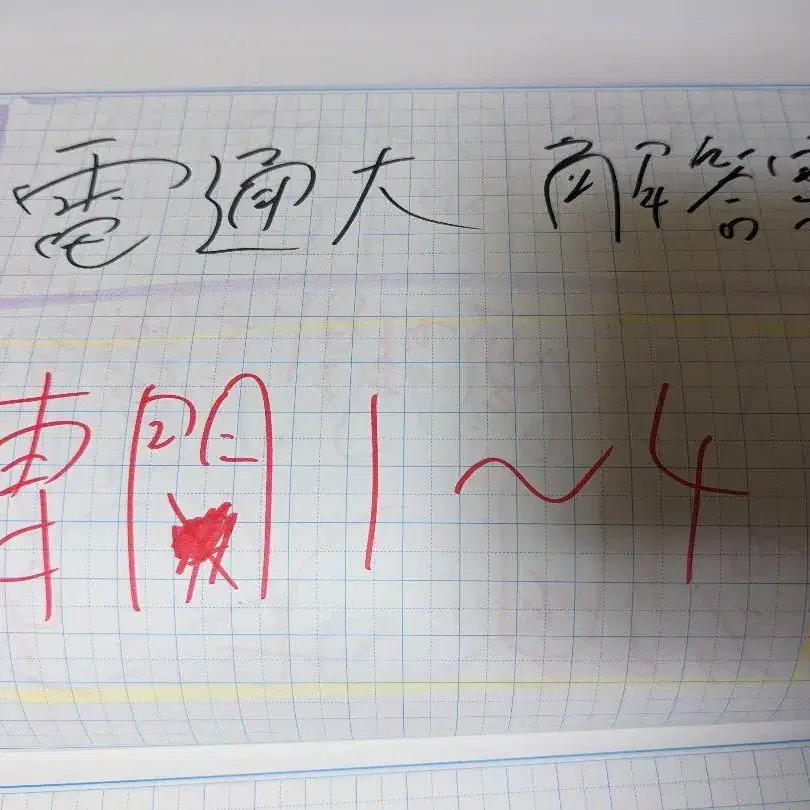 電通大 解答案
専門 1~4